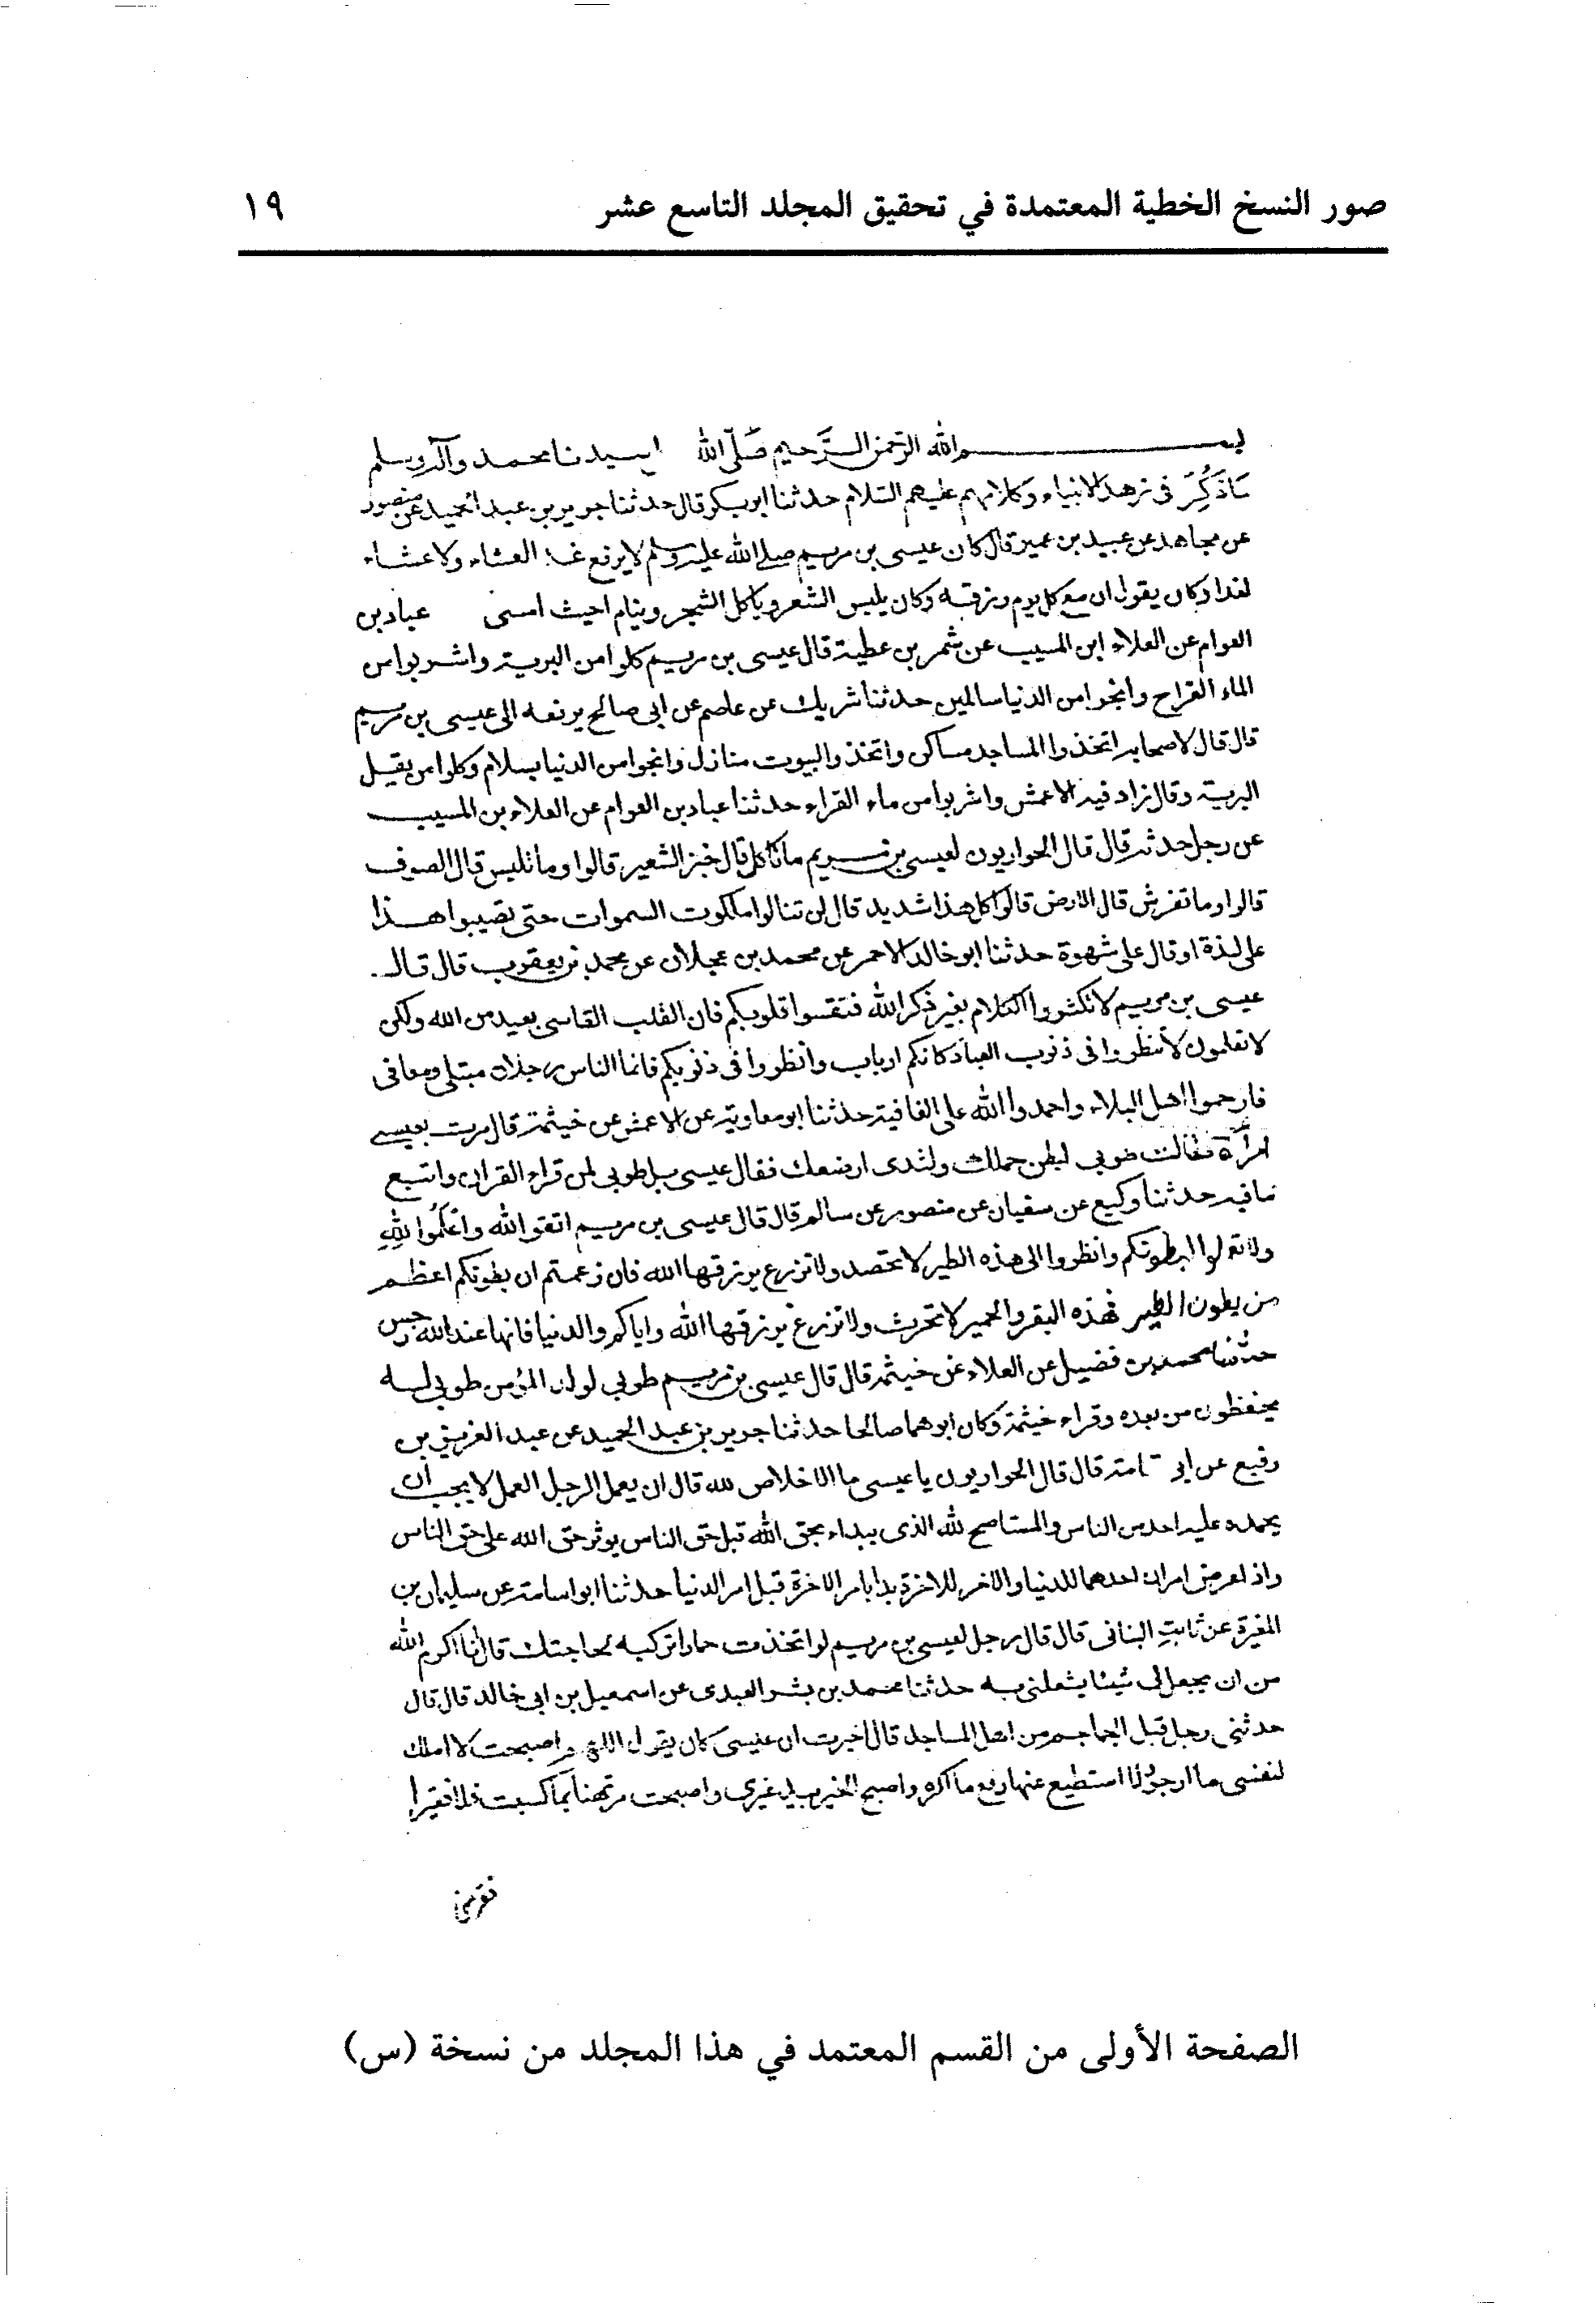 صور النسخ الخطية المعتمدة في تحقيق المجلد التاسع عشر ١٩
بسم الله الرحمن الرحيم صلى الله سيدنا محمد وآله وسلم
ما ذكر في زهد الانبياء وكلامهم عليهم السلام حدثنا ابو بكر قال حدثنا جرير بن عبد الحميد عن منصور
عن مجاهد عن عبيد بن عمير قال كان عيسى بن مريم صلى الله عليه وسلم لا يرفع غدا العشاء ولا عشاء
لغدا وكان يقول ان مع كل يوم رزقه وكان يلبس الشعر وياكل الشجر وينام احيث امسى عباد بن
العوام عن العلاء ابن المسيب عن شمر بن عطية قال عيسى بن مريم كلوا من البرية واشربوا من
الماء القراح وانجوا من الدنيا سالمين حدثنا شريك عن عاصم عن ابى صالح يرفعه الى عيسى بن مريم
قال قال لاصحابه اتخذوا المساجد مساكن واتخذوا البيوت منازل وانجوا من الدنيا بسلام وكلوا من بقل
البرية وقال زاد فيه الاعمش واشربوا من ماء القراء حدثنا عباد بن العوام عن العلاء بن المسيب
عن رجل حدثه قال قال الحواريون لعيسى بن مريم ما تاكل قال خبز الشعير قالوا وما تلبس قال الصوف
قالوا وما تفرش قال الارض قالوا كل هذا شديد قال لن تنالوا ملكوت السموات حتى تصيبوا هذا
على لذة او قال على شهوة حدثنا ابو خالد الاحمر عن محمد بن عجلان عن محمد بن يعقوب قال قال
عيسى بن مريم لا تكثروا الكلام بغير ذكر الله فتقسوا قلوبكم فان القلب القاسى بعيد من الله ولكن
لا تعلمون لا تنظروا فى ذنوب العباد كانكم ارباب وانظروا فى ذنوبكم فانما الناس رجلان مبتلى ومعافى
فارحموا اهل البلاء واحمدوا الله على العافية حدثنا ابو معاوية عن الاعمش عن خيثمة قال مرت بعيسى
امرأة فقالت طوبى لبطن حملك ولثدى ارضعك فقال عيسى بل طوبى لمن قراء القران واتبع
ما فيه حدثنا وكيع عن سفيان عن منصور عن سالم قال قال عيسى بن مريم اتقوا الله واعملوا لله
ولا تعملوا لبطونكم وانظروا الى هذه الطير لا تحصد ولا تزرع يرزقها الله فان زعمتم ان بطونكم اعظم
من بطون الطير فهذه البقر والحمير لا تحرث ولا تزرع يرزقها الله واياكم والدنيا فانها عند الله رجس
حدثنا محمد بن فضيل عن العلاء عن خيثمة قال قال عيسى بن مريم طوبى لولد المؤمن طوبى له
يحفظون من بعده وقراء خيثمة وكان ابوهما صالحا حدثنا جرير بن عبد الحميد عن عبد العزيز بن
رفيع عن ابى ثمامة قال قال الحواريون يا عيسى ما الاخلاص لله قال ان يعمل الرجل العمل لا يحب ان
يحمده عليه احد من الناس والمناصح لله الذى يبداء بحق الله قبل حق الناس يوثر حق الله على حق الناس
واذا عرض امران احدهما للدنيا والاخر للاخرة بدا بامر الاخرة قبل امر الدنيا حدثنا ابو اسامة عن سليمان بن
المغيرة عن ثابت البنانى قال قال رجل لعيسى بن مريم لو اتخذت حمارا تركبه لحاجتك قال انا اكرم الله
من ان يجعل لى شيئا يشغلنى به حدثنا محمد بن بشر العبدى عن اسمعيل بن ابى خالد قال قال
حدثنى رجل قبل الجماجم من اهل المساجد قال اخبرت ان عيسى كان يقول اللهم اصبحت لا املك
لنفسى ما ارجو ولا استطيع عنها دفع ما اكره واصبح الخير بيد غيرى واصبحت مرتهنا بما كسبت فلا فقيرا
الصفحة الأولى من القسم المعتمد في هذا المجلد من نسخة (س)